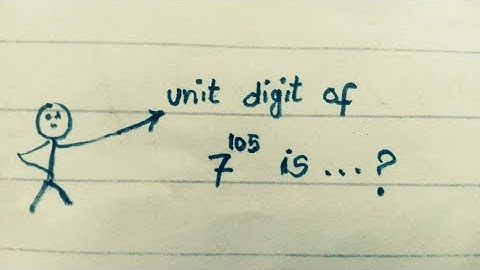 unit digit of
7^105 is ...?